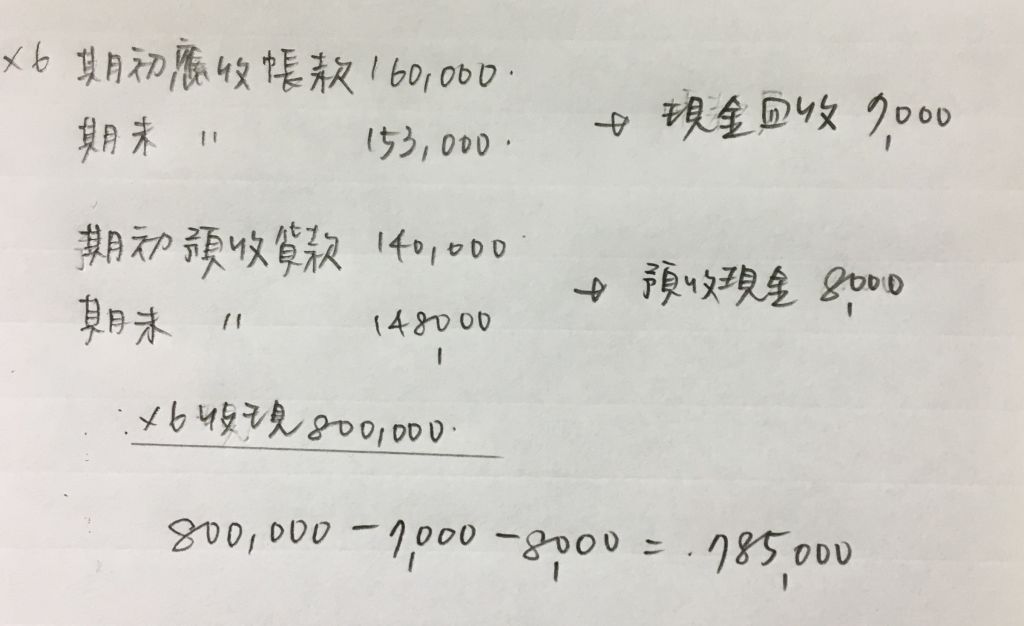 ×6 期初應收帳款 160,000.
期末 〃 153,000.
→ 現金回收 7,000
期初預收貨款 140,000
期末 〃 148,000
→ 預收現金 8,000
∴ ×6收現 800,000.
800,000 - 7,000 - 8,000 = 785,000